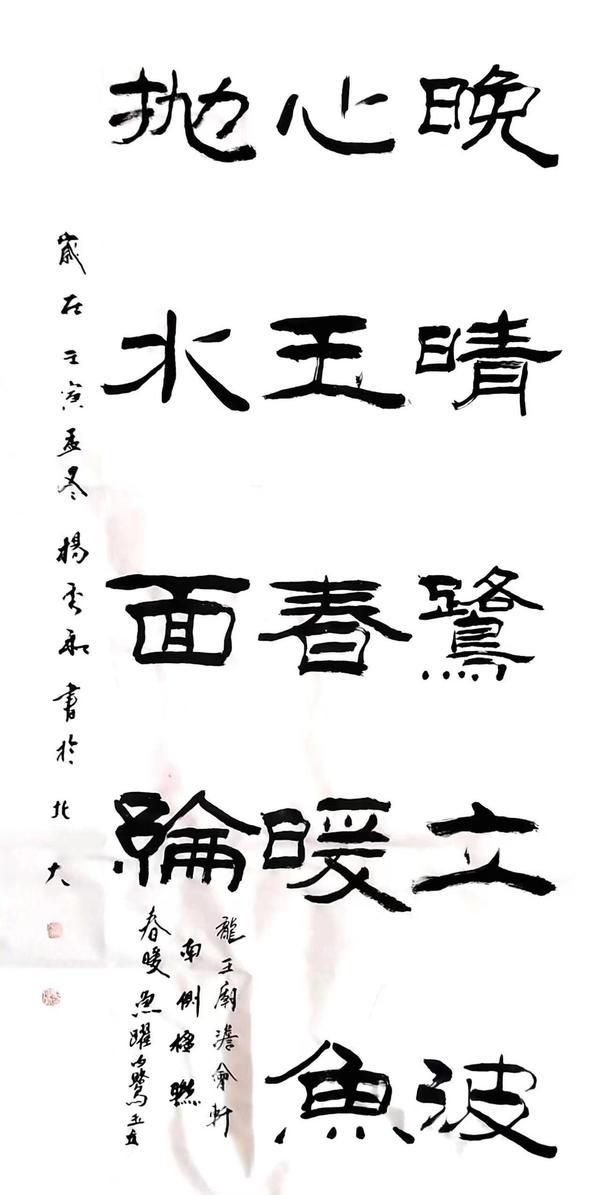 晚晴鷺立波
心玉春暖魚
抛水面綸
龍王廟澹會軒
南側楹聯
春暖魚躍白鷺玉立
歲在壬寅孟冬楊書於北大